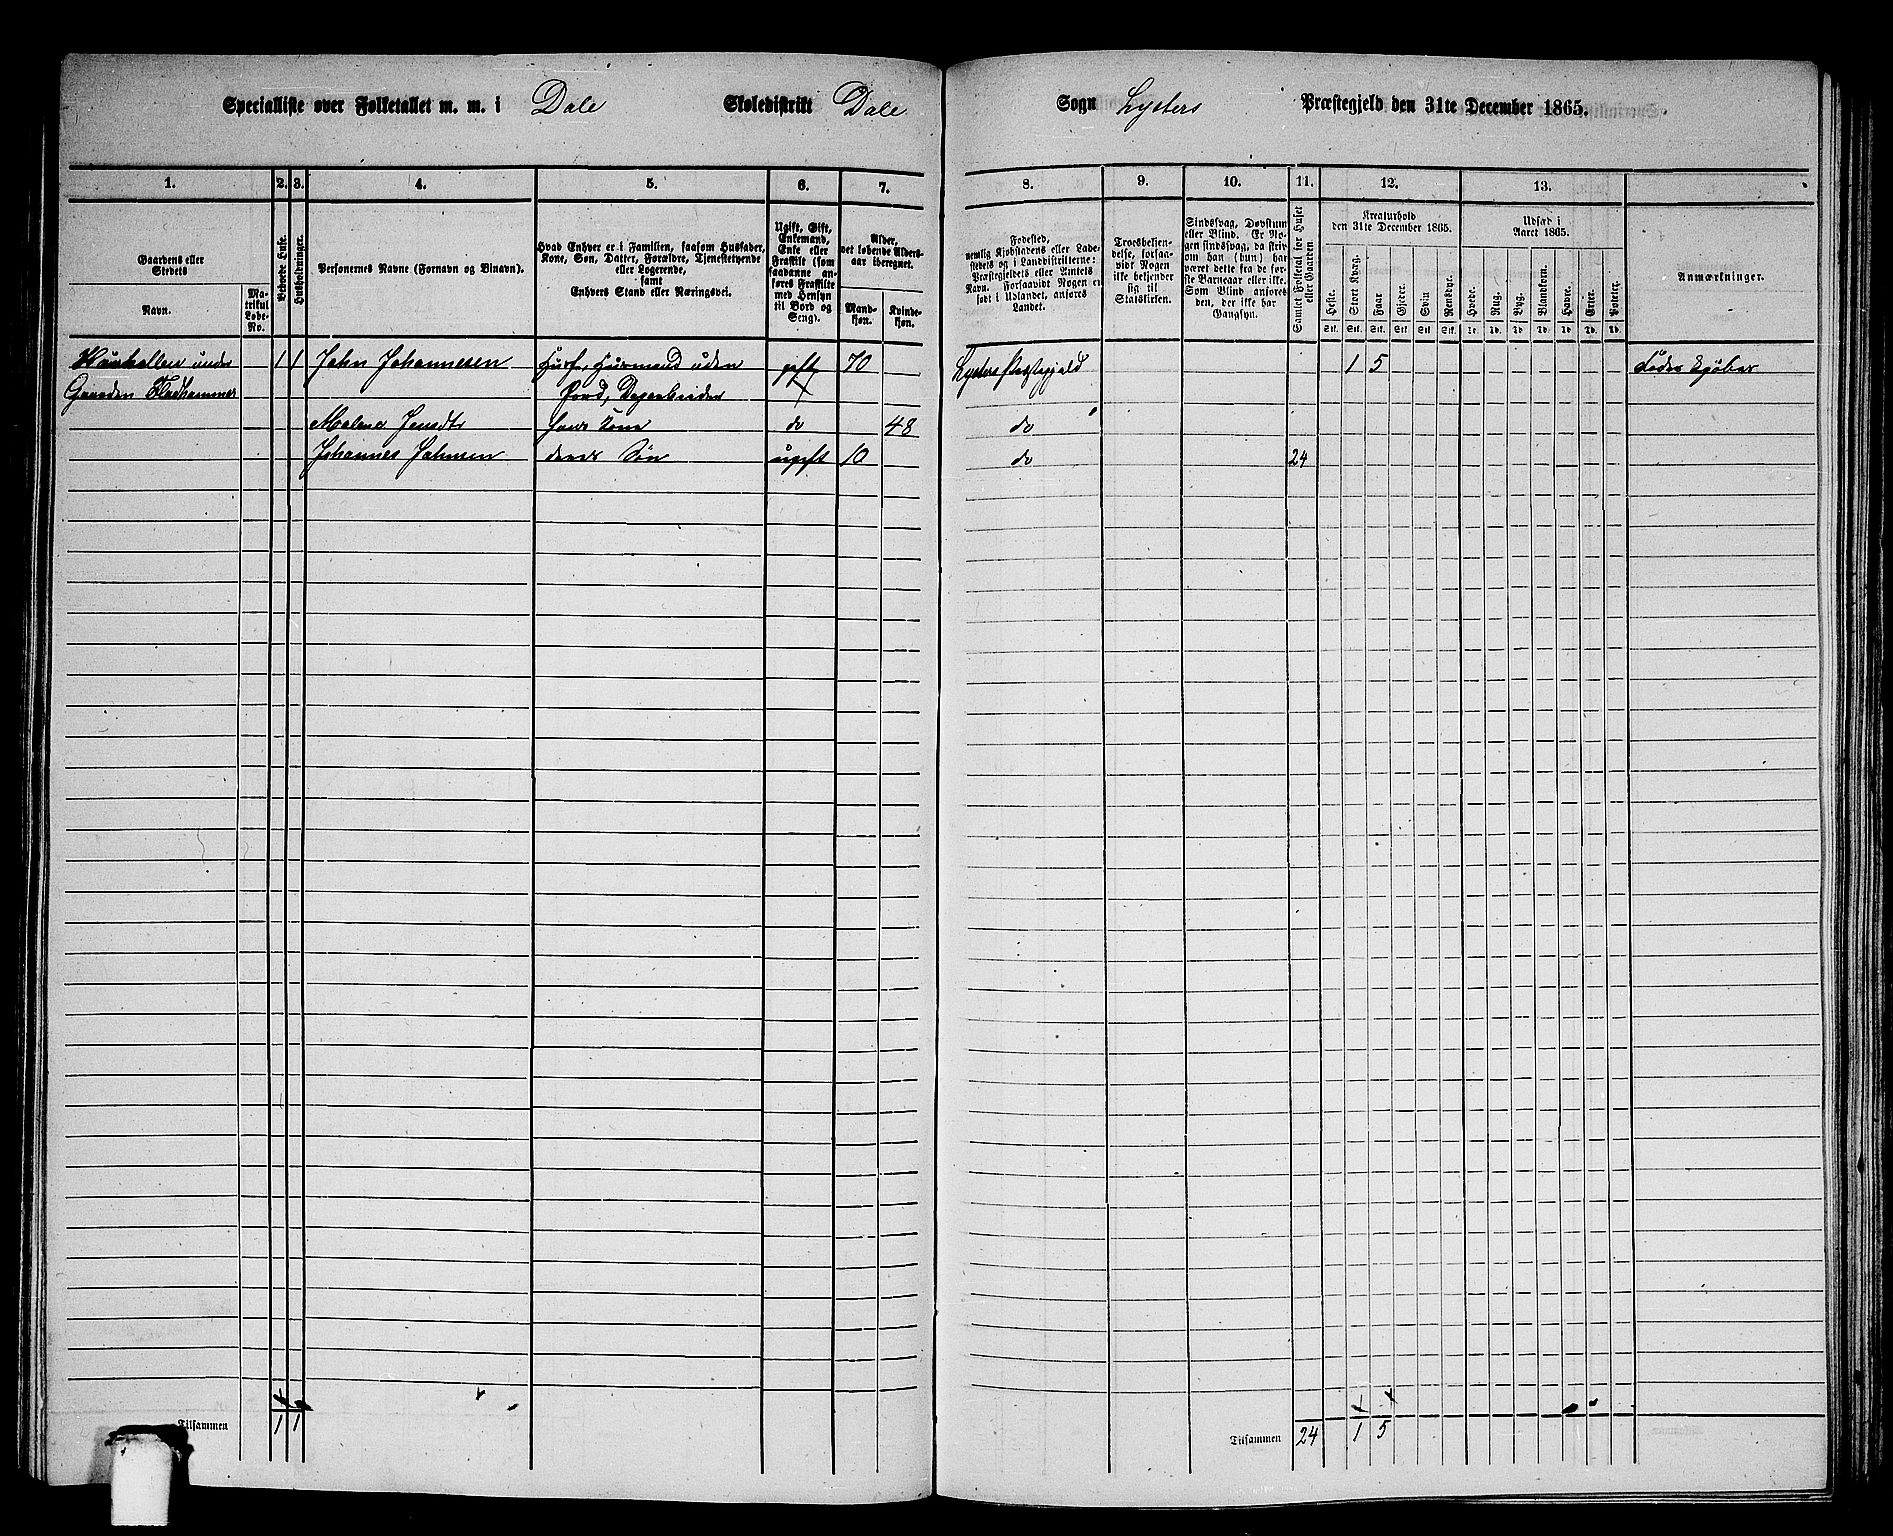 Specialliste over Folketallet m. m. i Dale Skoledistrikt Dale Sogn Lysters Præstegjeld den 31te December 1865.
1. 2. 3. 4. 5. 6. 7. 8. 9. 10. 11. 12. 13.
Gaardens eller Stedets
Navn.
Matrikul Løbe-No.
Beboede Huse.
Husholdninger.
Personernes Navne (Fornavn og Binavn).
Hvad Enhver er i Familien, saasom Husfader, Kone, Søn, Datter, Forældre, Tjenestetyende eller Logerende,
samt
Enhvers Stand eller Næringsvei.
Ugift, Gift, Enkemand, Enke eller Fraskilt (som saadanne anføres Fraskilte med Hensyn til Bord og Seng).
Alder, det løbende Alders-aar iberegnet.
Mandkøn.
Kvindekøn.
Fødested,
nemlig Kjøbstadens eller Ladestedets og i Landdistrikterne: Præstegjeldets eller Amtets Navn. Forsaavidt Nogen er født i Udlandet, anføres Landet.
Troesbekjendelse, forsaavidt Nogen ikke bekjender sig til Statskirken.
Sindssvag, Døvstum eller Blind. Er Nogen sindssvag, da skriv om han (hun) har været dette fra de første Barneaar eller ikke. Som Blind anføres den, der ikke har Gangsyn.
Samlet Folketal for Huset eller Gaarden.
Kreaturhold
den 31te December 1865.
Heste. Stort Kvæg. Faar Gjeder. Svin Rensdyr.
Stk. Stk. Stk. Stk. Stk. Stk.
Udsæd i
Aaret 1865.
Hvede. Rug. Byg. Blandkorn. Havre. Erter. Poteter.
Td. Td. Td. Td. Td. Td. Td.
Anmærkninger.
under 1 1 John Johannesen Husf, Husmand uden gift 70 Lysters Præstegjeld 1 5 Føder kjøber
Gaarden Fladhammer Jord, Dagarbeider
Malene Jensdtr hans Kone do 48 do
Johannes Johnsen deres Søn ugift 10 do 24
Tilsammen 1 1 Tilsammen 24 1 5